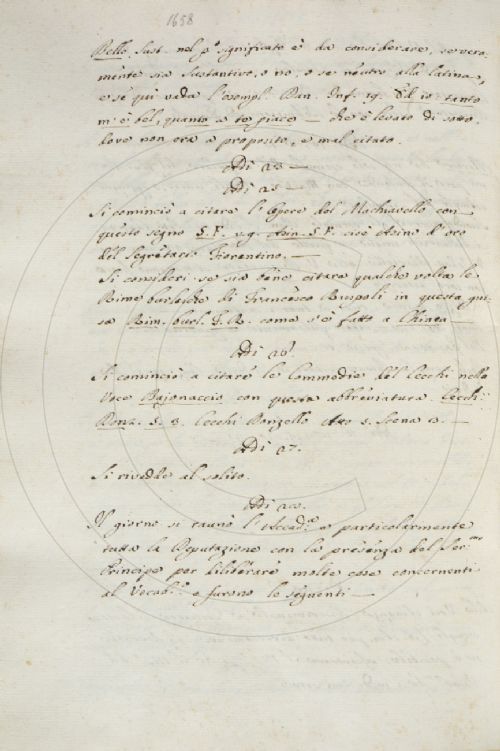 1658
Bello. Sust. nel p.o significato è da considerare, se vera-
mente sia sustantivo, o no, o se neutro alla latina,
e se qui vada l'esempl. Dan. Inf. 19. Ed io: tanto
m'è bel, quanto a te piace — che è levato di sotto
dove non era a proposito, e mal citato.
Adì 23 —
Adì 25 —
Si cominciò a citare l'Opere del Machiavello con
questo segno S. F. v. g. Asin. S. F. cioè Asino d'oro
del Segretario Fiorentino. —
Si consideri se sia bene citare qualche volta le
Rime burlesche di Francesco Ruspoli in questa gui
sa Rim. burl. F. R. come s'è fatto a Chinea —
Adì 26
Si cominciò a citare le Commedie del Cecchi nella
Voce Bajonaccio con questa abbreviatura Cecch.
Donz. 5. 3. Cecchi Donzello Atto 5. Scena 3. —
Adì 27.
Si rivedde al solito.
Adì 28.
Il giorno si raunò l'Accad.a e particolarmente
tutta la Deputazione con la presenza del Ser.mo
Principe per diliberare molte cose concernenti
al Vocab.o e furono le seguenti —